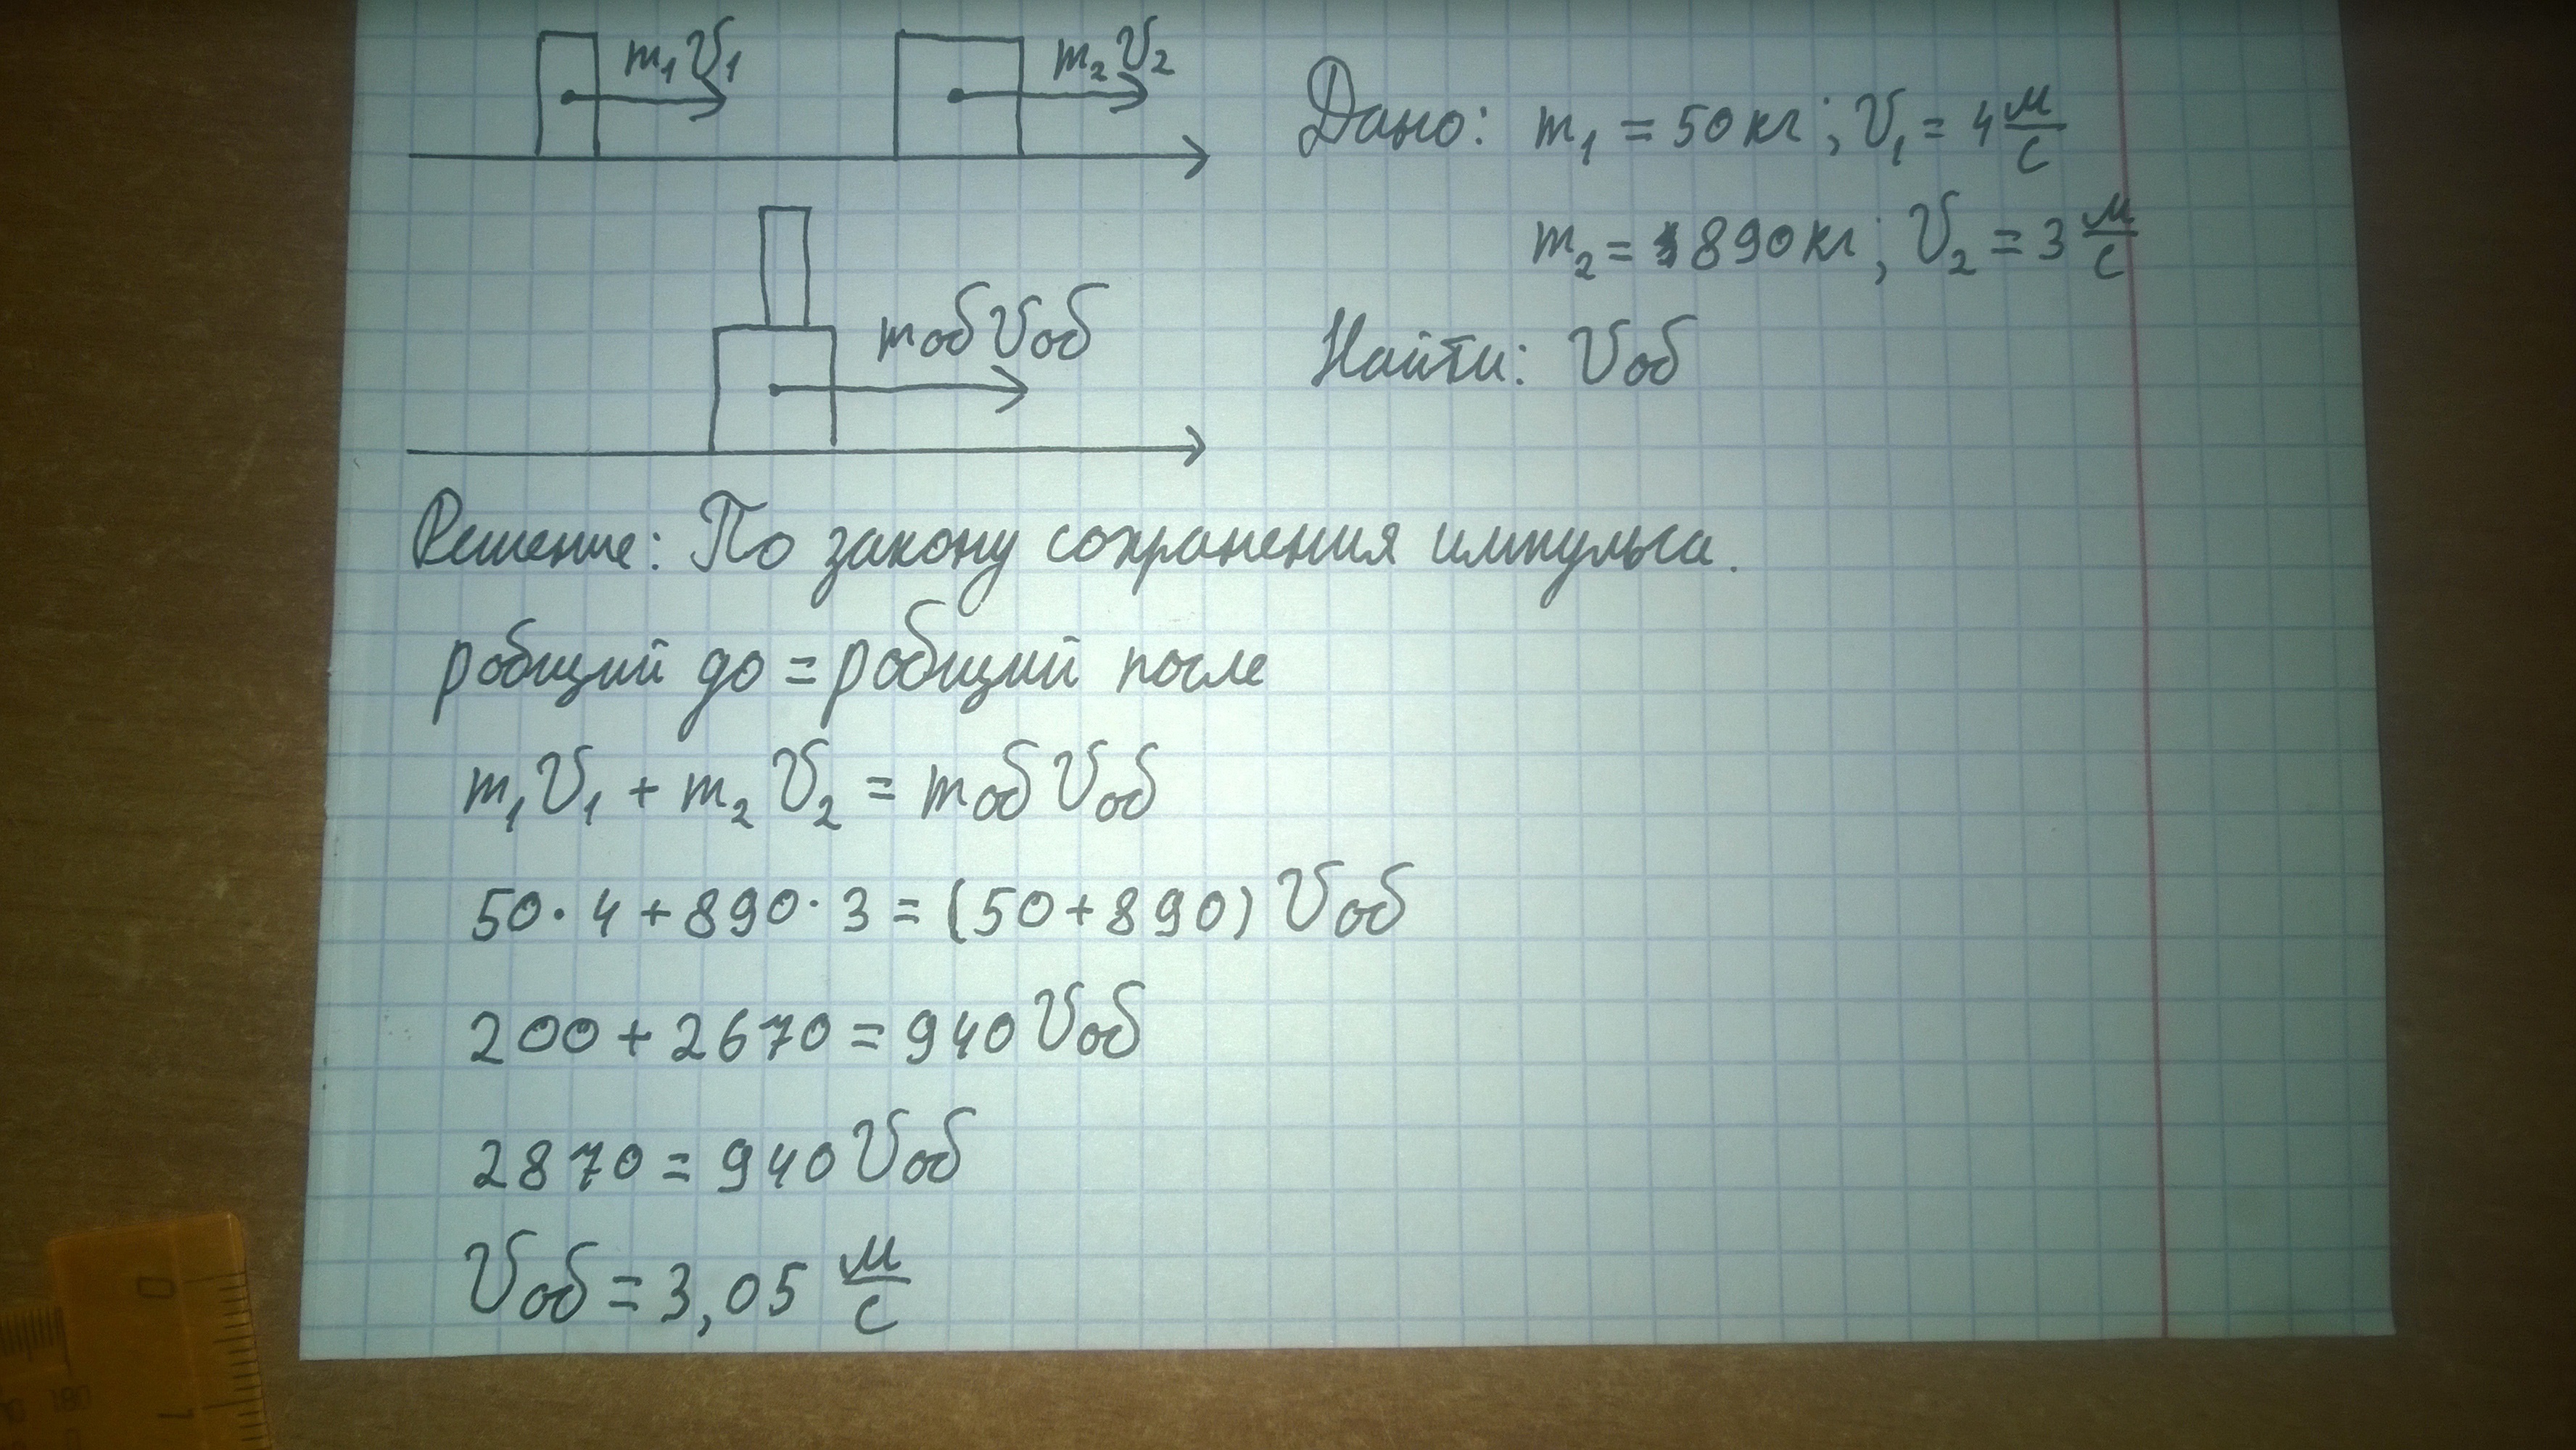 m₁V₁ m₂V₂
Дано: m₁ = 50 кг; V₁ = 4 м/с
m₂ = 890 кг; V₂ = 3 м/с
mоб Vоб
Найти: Vоб
Решение: По закону сохранения импульса.
pобщий до = pобщий после
m₁V₁ + m₂V₂ = mоб Vоб
50 · 4 + 890 · 3 = (50 + 890) Vоб
200 + 2670 = 940 Vоб
2870 = 940 Vоб
Vоб = 3,05 м/с
0
1
180